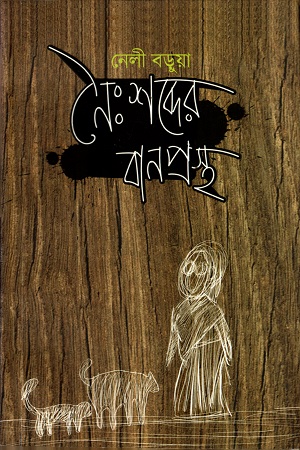 নেলী বড়ুয়া
নৈঃশব্দের
বানপ্রস্থ